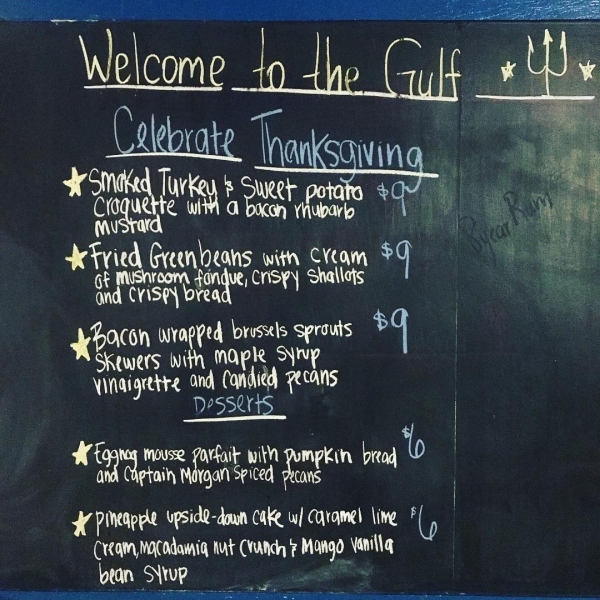 Welcome to the Gulf
Celebrate Thanksgiving
Smoked Turkey & Sweet potato $9
Croquette with a bacon rhubarb
mustard
Fried Greenbeans with cream $9
of mushroom fondue, crispy shallots
and crispy bread
Bacon wrapped brussels sprouts $9
Skewers with maple syrup
vinaigrette and candied pecans
Desserts
Eggnog mousse parfait with pumpkin bread $6
and Captain Morgan spiced pecans
pineapple upside-down cake w/ caramel lime $6
cream, macadamia nut crunch & Mango vanilla
bean syrup
year Rum